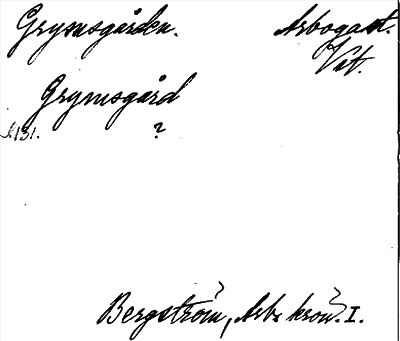 Grymsgården. Arbogast.
Vät.
Grymsgård
s. 131. ?
Bergström, Arb. krön. I.